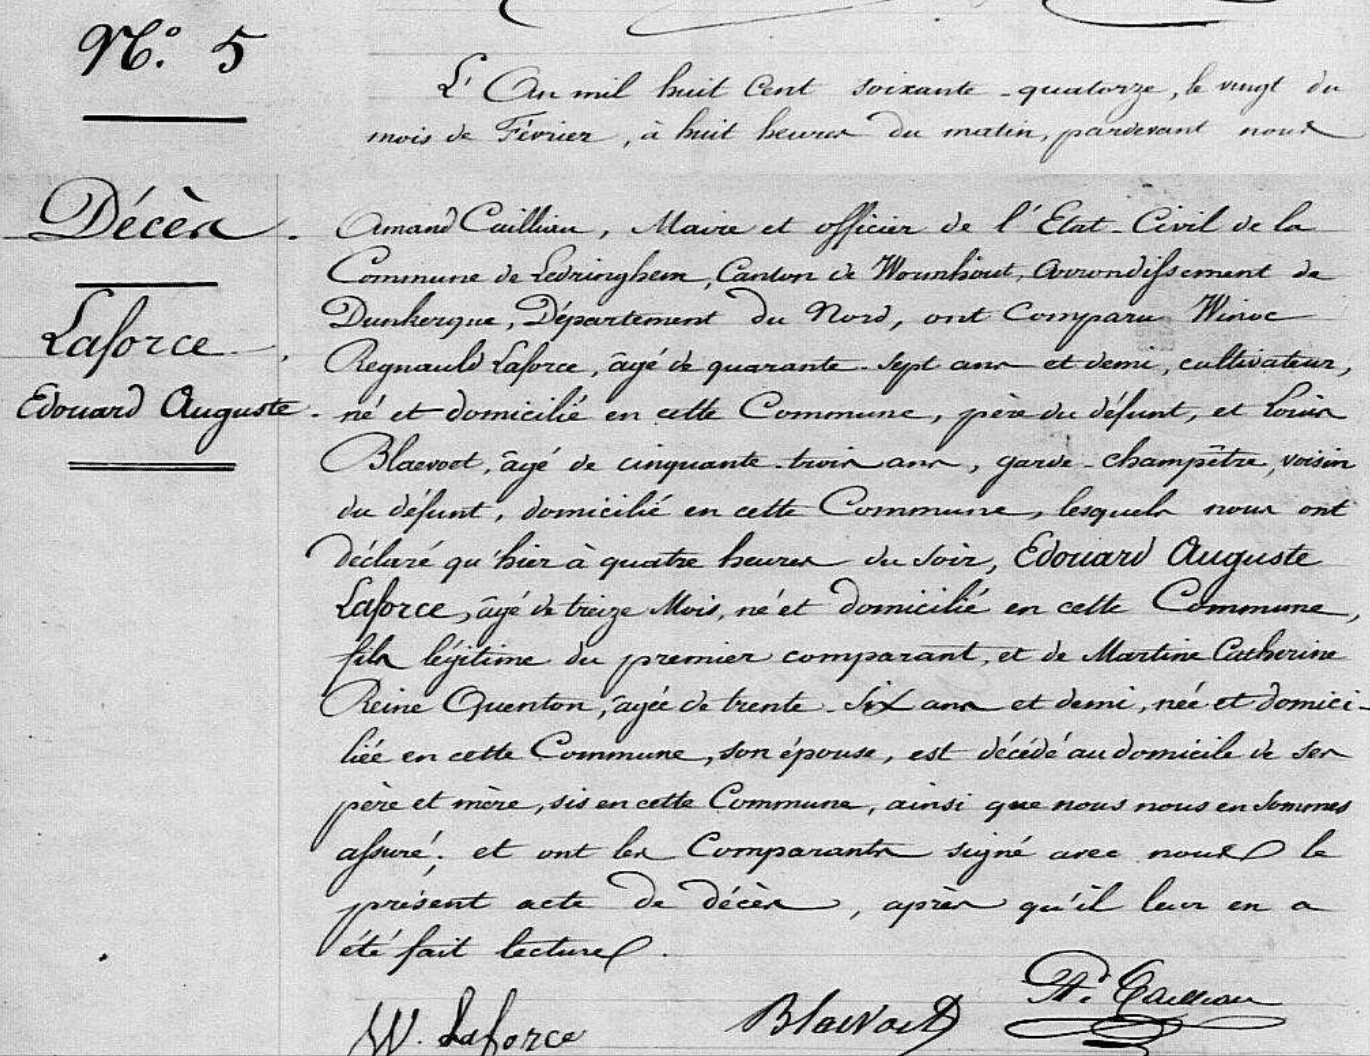 N.° 5
L'An mil huit Cent soixante-quatorze, le vingt du
mois de Février, à huit heures du matin, pardevant nous
Décès.
Amand Cailliau, Maire et officier de l'Etat-Civil de la
Commune de Ledringhem, Canton de Wormhout, Arrondissement de
Dunkerque, Département du Nord, ont Comparu Winoc
Laforce.
Regnauld Laforce, âgé de quarante-sept ans et demi, cultivateur,
Edouard Auguste.
né et domicilié en cette Commune, père du défunt, et Louis
Blaevoet, âgé de cinquante-trois ans, garde-champêtre, voisin
du défunt, domicilié en cette Commune, lesquels nous ont
déclaré qu'hier à quatre heures du soir, Edouard Auguste
Laforce, âgé de treize Mois, né et domicilié en cette Commune,
fils légitime du premier comparant, et de Martine Catherine
Reine Quenton, âgée de trente-six ans et demi, née et domici-
liée en cette Commune, son épouse, est décédé au domicile de ses
père et mère, sis en cette Commune, ainsi que nous nous en sommes
assuré; et ont les Comparants signé avec nous le
présent acte de décès, après qu'il leur en a
été fait lecture.
W. Laforce Blaevoet A. Cailliau